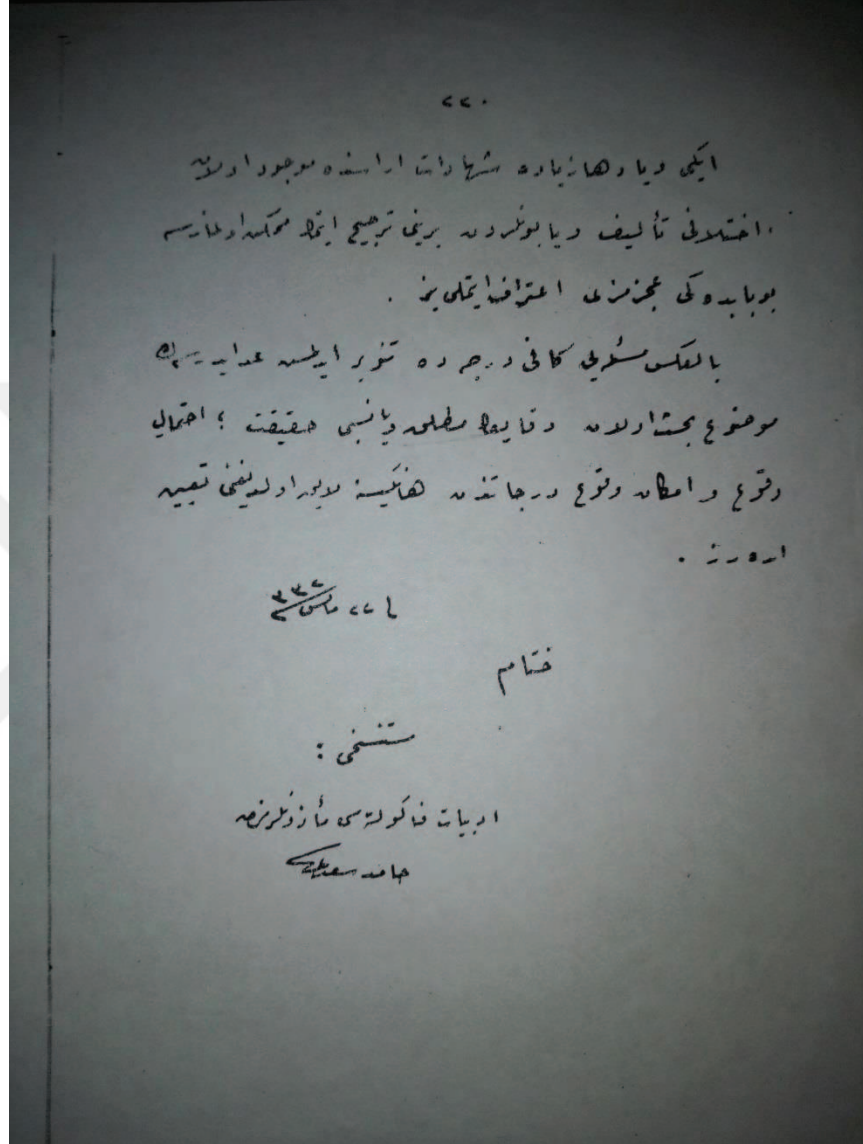 ٢٢٠
ایكی ویا دها زیاده شهادات اراسنده موجود اولان
اختلافی تألیف ویا بونلردن برینی ترجیح ایتمك ممكن اولمازسه
بوبابده كی عجزمزی اعتراف ایتملی یز .
بالعكس مسئله یی كافی درجه ده تنویر ایدلمش عد ایدرسه ك
موضوع بحث اولان وقایعك مطلق ویا نسبی حقیقت ؛ احتمال
وقوع و امكان وقوع درجاتندن هانكیسنه لایق اولدیغنی تعیین
ایده رز .
٢٢ مارس ٣٣٢
ختام
مستنسخی :
ادبیات فاكولته سی مأذونلرندن
حامد